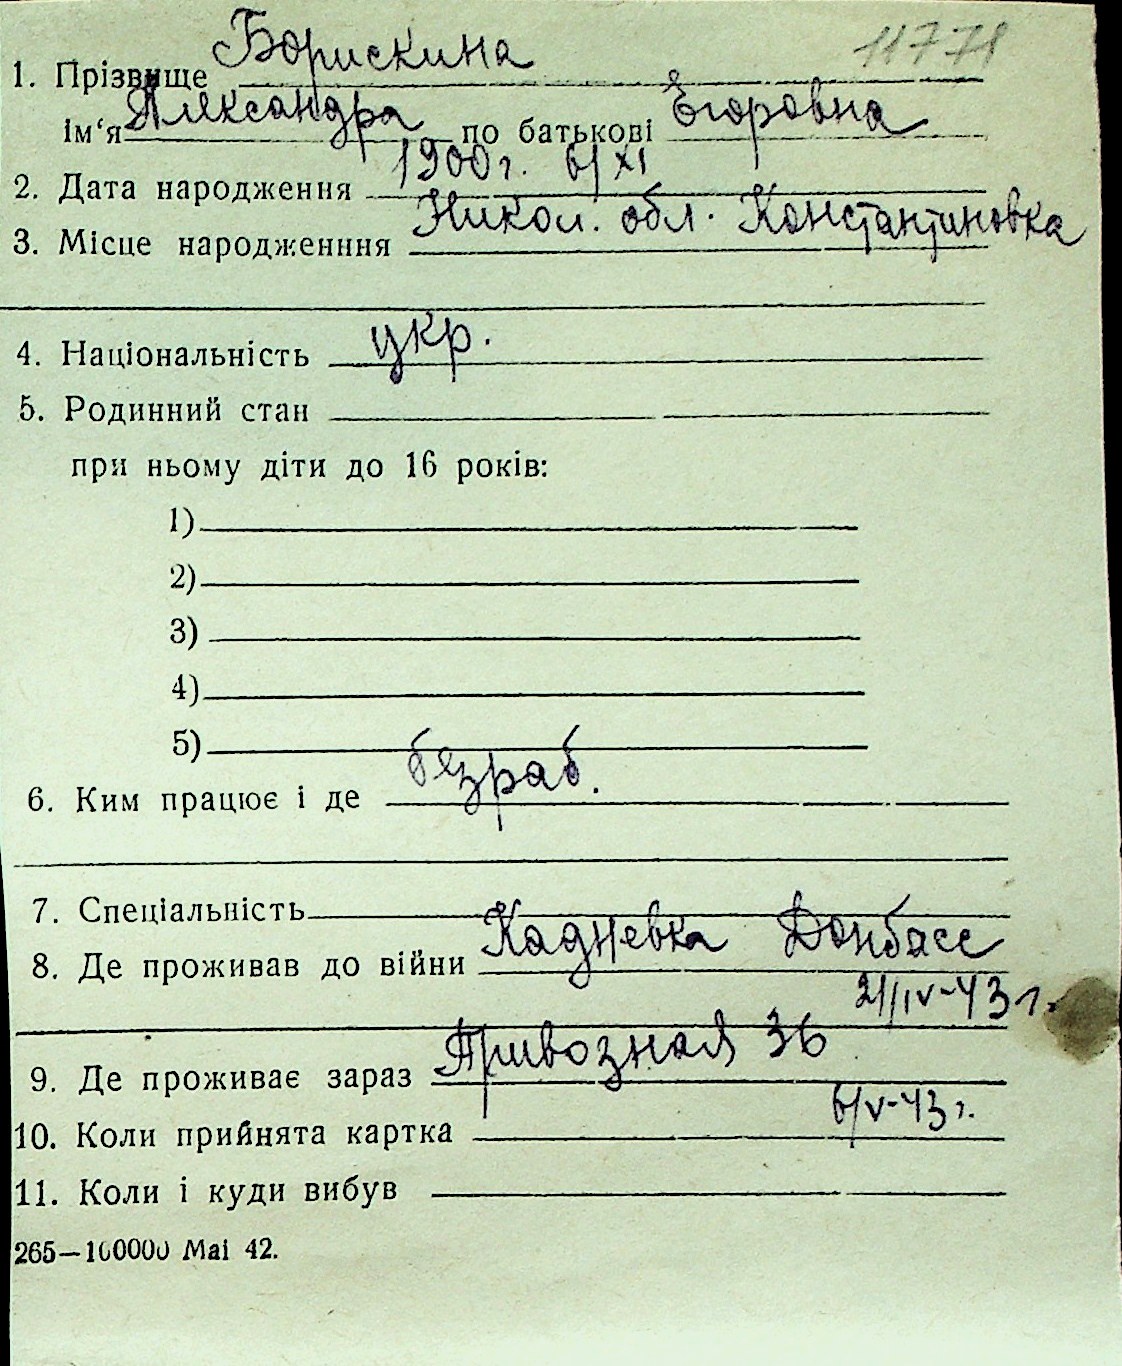 11771
1. Прізвище Борискина
Ім‘я Александра по батькові Егоровна
2. Дата народження 1900 г. 6/XI
3. Місце народженння Никол. обл. Константиновка
4. Національність укр.
5. Родинний стан
при ньому діти до 16 років:
1)
2)
3)
4)
5)
6. Ким працює і де безраб.
7. Спеціальність
8. Де проживав до війни Кадиевка Донбасс
21/IV-43 г.
9. Де проживає зараз Привозная 36
10. Коли прийнята картка 6/V-43 г.
11. Коли і куди вибув
265—100000 Mai 42.